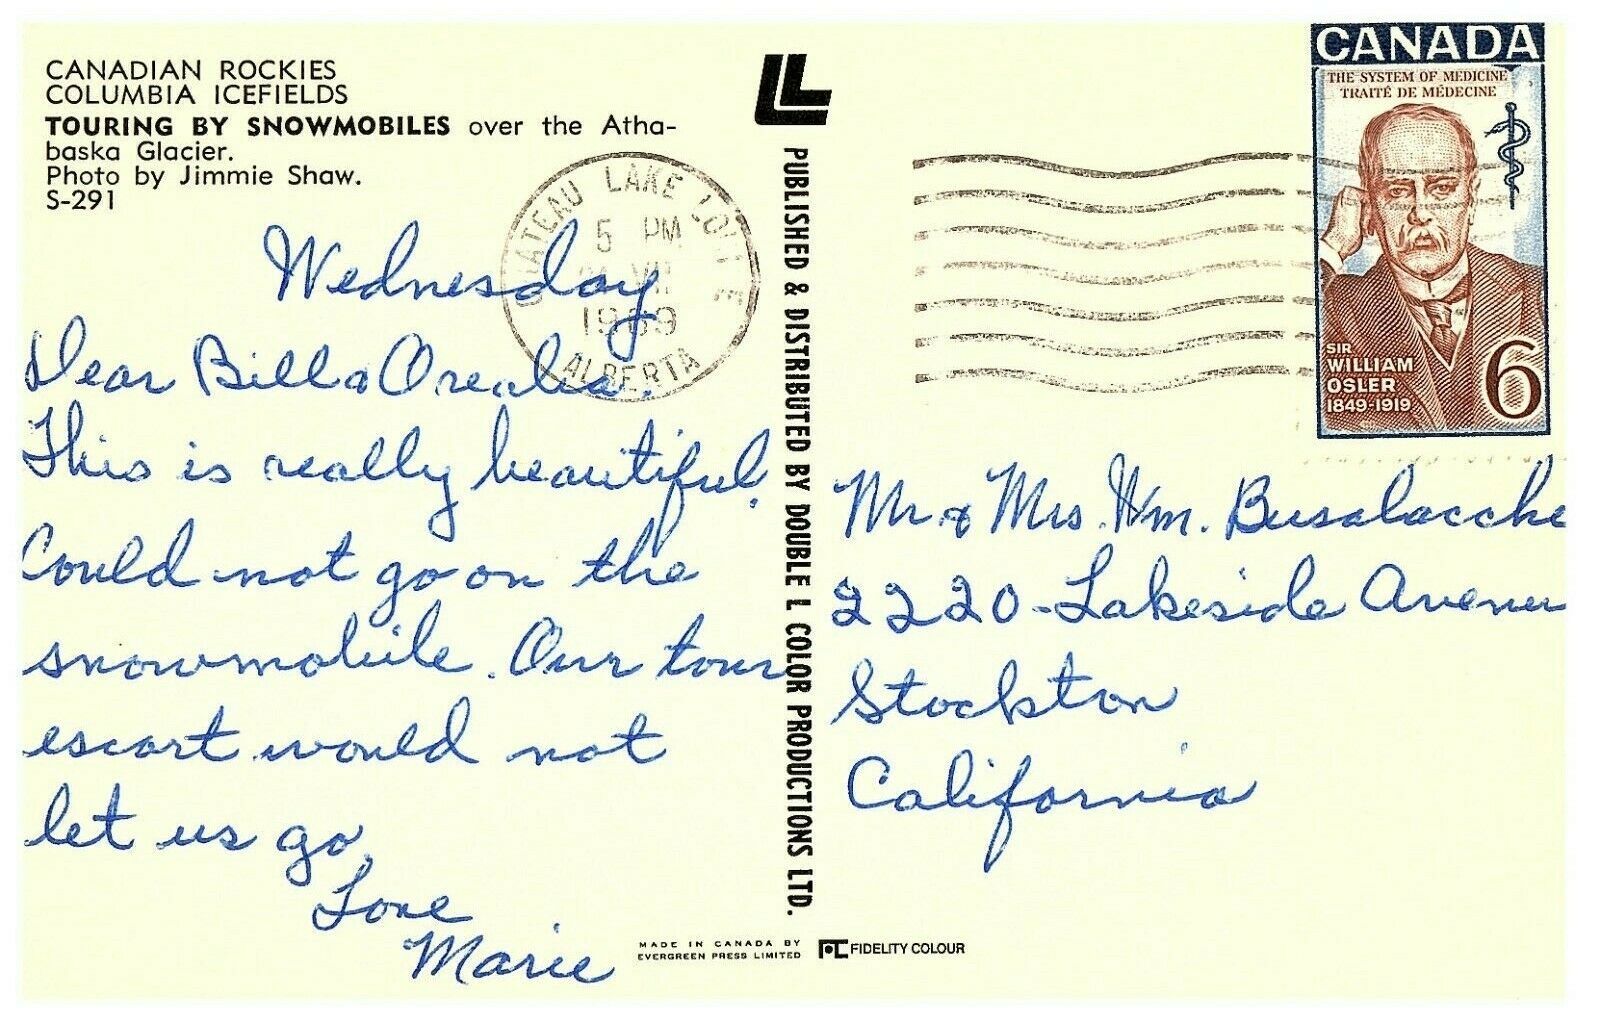 CANADIAN ROCKIES
COLUMBIA ICEFIELDS
TOURING BY SNOWMOBILES over the Atha-
baska Glacier.
Photo by Jimmie Shaw.
S-291
Wednesday
Dear Bill &
This is really beautiful.
Could not go on the
snowmobile. Our tour
escort would not
let us go.
Love
Marie
LAKE
5 PM
1969
ALBERTA
PUBLISHED & DISTRIBUTED BY DOUBLE L COLOR PRODUCTIONS LTD.
MADE IN CANADA BY
EVERGREEN PRESS LIMITED
FIDELITY COLOUR
CANADA
THE SYSTEM OF MEDICINE
TRAITÉ DE MÉDECINE
SIR
WILLIAM
OSLER
1849-1919
6
Mr & Mrs. Wm. Busalacchi
2220 - Lakeside Avenue
Stockton
California